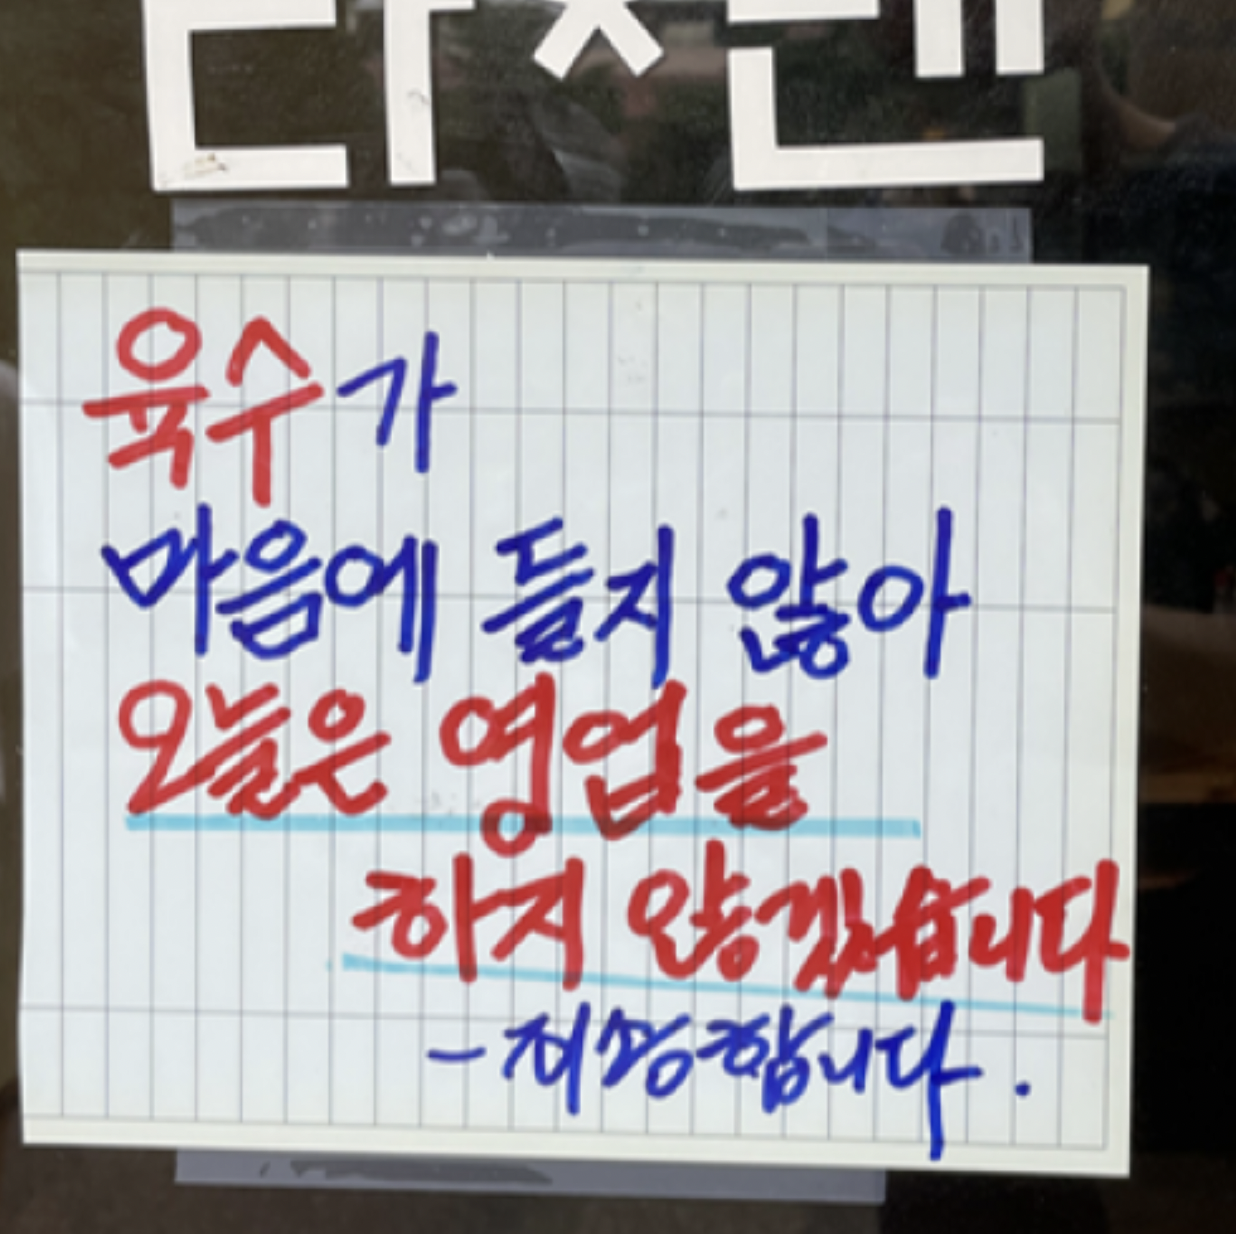 육수가
마음에 들지 않아
오늘은 영업을
하지 않겠습니다
- 죄송합니다.